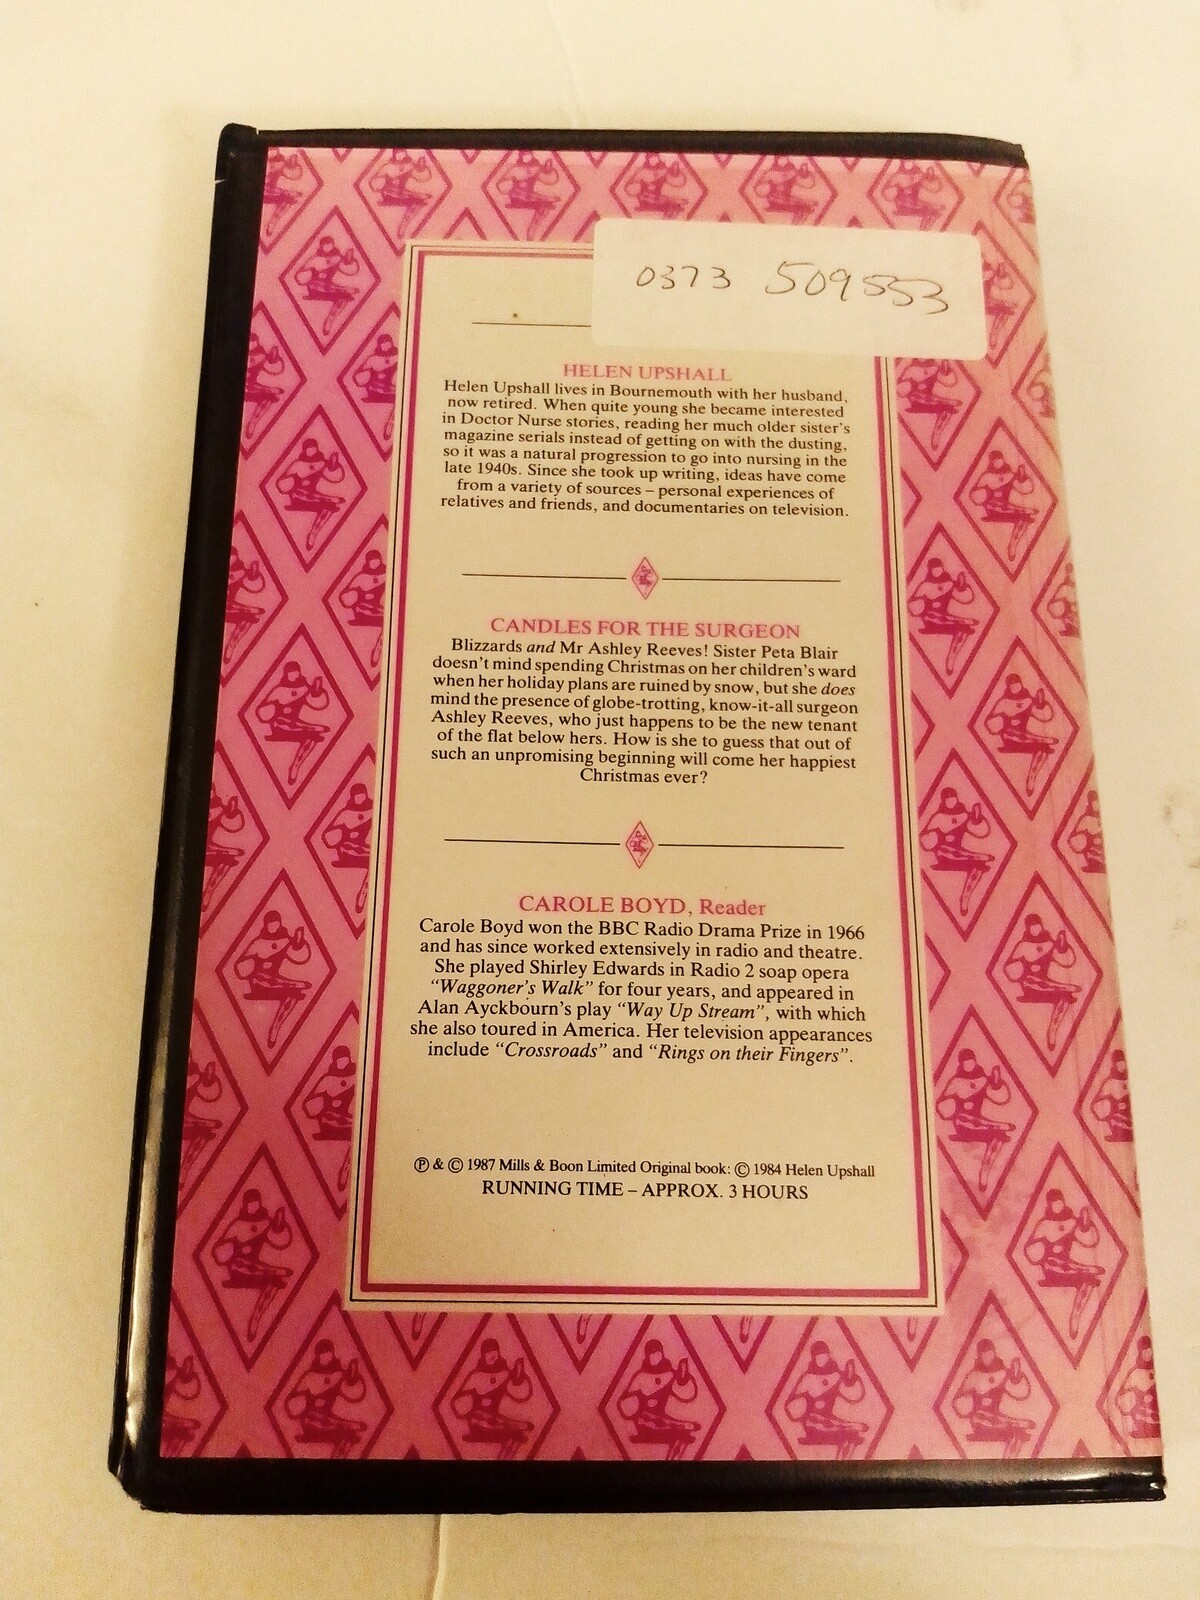 0373 509553
HELEN UPSHALL
Helen Upshall lives in Bournemouth with her husband,
now retired. When quite young she became interested
in Doctor Nurse stories, reading her much older sister's
magazine serials instead of getting on with the dusting,
so it was a natural progression to go into nursing in the
late 1940s. Since she took up writing, ideas have come
from a variety of sources – personal experiences of
relatives and friends, and documentaries on television.
CANDLES FOR THE SURGEON
Blizzards and Mr Ashley Reeves! Sister Peta Blair
doesn't mind spending Christmas on her children's ward
when her holiday plans are ruined by snow, but she does
mind the presence of globe-trotting, know-it-all surgeon
Ashley Reeves, who just happens to be the new tenant
of the flat below hers. How is she to guess that out of
such an unpromising beginning will come her happiest
Christmas ever?
CAROLE BOYD, Reader
Carole Boyd won the BBC Radio Drama Prize in 1966
and has since worked extensively in radio and theatre.
She played Shirley Edwards in Radio 2 soap opera
"Waggoner's Walk" for four years, and appeared in
Alan Ayckbourn's play "Way Up Stream", with which
she also toured in America. Her television appearances
include "Crossroads" and "Rings on their Fingers".
Ⓟ & © 1987 Mills & Boon Limited Original book: © 1984 Helen Upshall
RUNNING TIME – APPROX. 3 HOURS